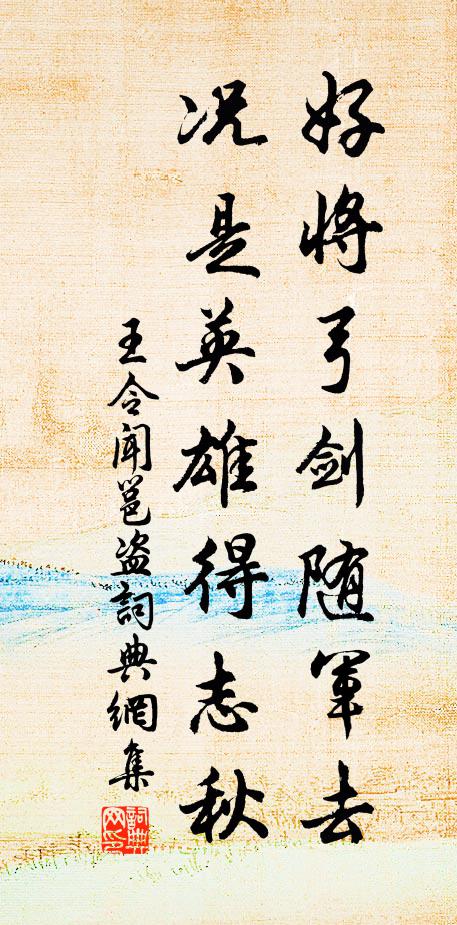 好將弓劍随軍去
况是英雄得志秋
王令聞邕盗詞典網集
詞典网印